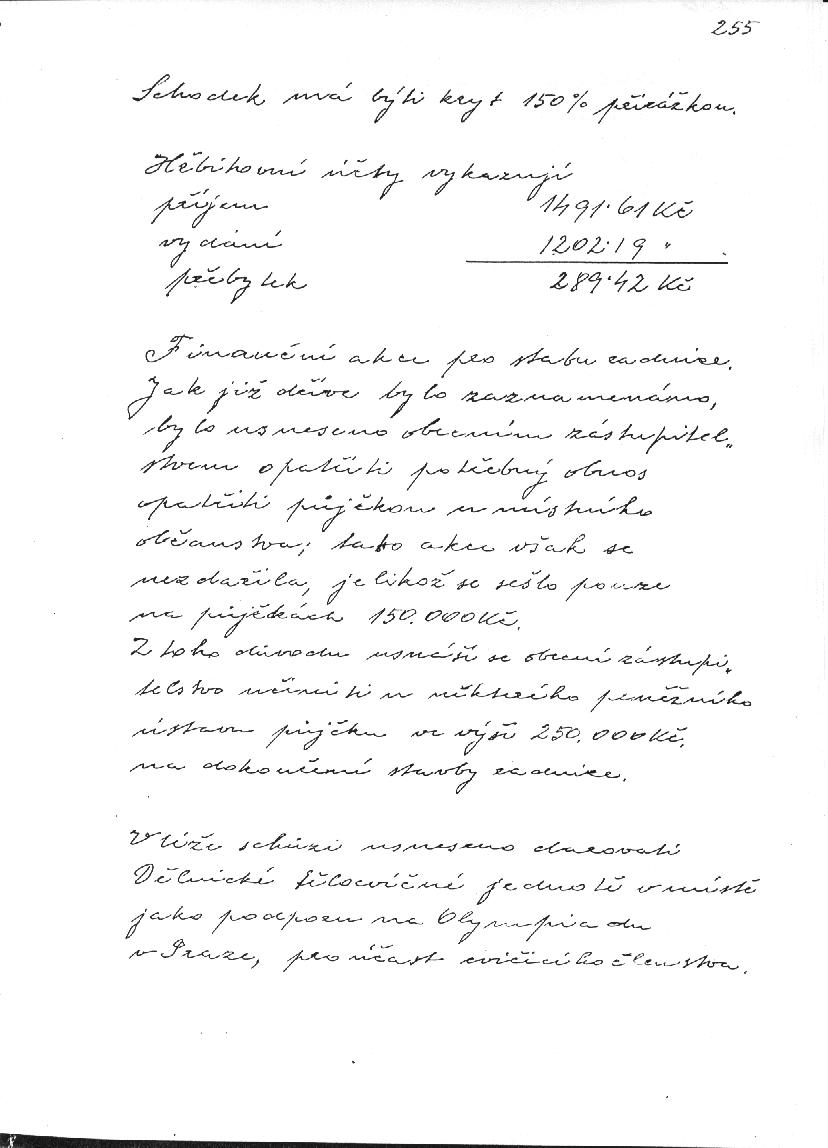 255
Schodek má býti kryt 150% přirážkou.
Hřbitovní účty vykazují
příjem 1491·61 Kč
vydání 1202·19 "
přebytek 289·42 Kč
Finanční akce pro stabu radnice.
Jak již dříve bylo zaznamenáno,
bylo usneseno obecním zástupitel„
stvem opatřiti potřebný obnos
opatřiti půjčkou u místního
občanstva; tato akce však se
nezdařila, jelikož se sešlo pouze
na půjčkách 150.000 Kč.
Z toho důvodu usnáší se obecní zástupi„
telstvo učiniti u některého peněžního
ústavu půjčku ve výši 250.000 Kč.
na dokončení stavby radnice.
V téže schůzi usneseno darovati
Dělnické tělocvičné jednotě v místě
jako podporu na Olympiadu
v Praze, pro účast cvičícího členstva.